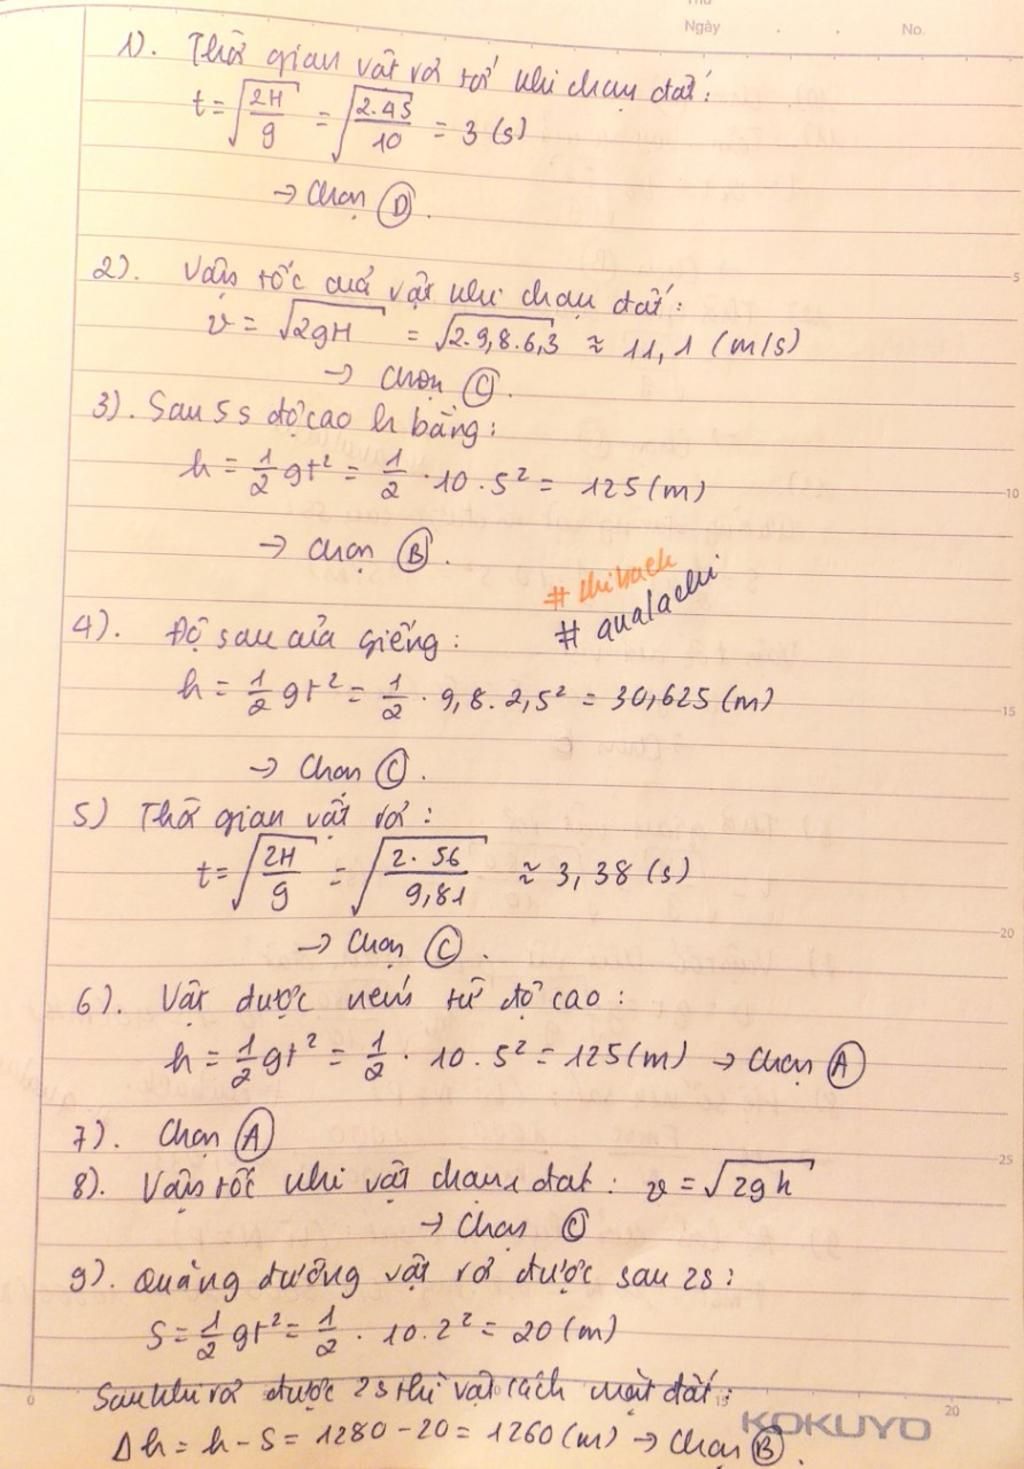 Thứ
Ngày . . No.
1). Thời gian vật rơi tới khi chạm đất:
t = √(2H/g) = √(2.45/10) = 3 (s)
→ Chọn Ⓓ.
2). Vận tốc của vật khi chạm đất:
v = √(2gH) = √(2.9,8.6,3) ≈ 11,1 (m/s)
→ Chọn Ⓒ.
3). Sau 5s độ cao h bằng:
h = 1/2 gt² = 1/2 . 10 . 5² = 125 (m)
→ Chọn Ⓑ.
# chibach
# qualachi
4). Độ sau của giếng:
h = 1/2 gt² = 1/2 . 9,8 . 2,5² = 30,625 (m)
→ Chọn Ⓒ.
5) Thời gian vật rơi:
t = √(2H/g) = √(2.56/9,81) ≈ 3,38 (s)
→ Chọn Ⓒ.
6). Vật được ném từ độ cao:
h = 1/2 gt² = 1/2 . 10 . 5² = 125 (m) → Chọn Ⓐ
7). Chọn Ⓐ
8). Vận tốc khi vật chạm đat: v = √(2gh)
→ Chọn Ⓒ
9). Quãng đường vật rơi được sau 2s:
S = 1/2 gt² = 1/2 . 10 . 2² = 20 (m)
Sau khi rơi được 2s thì vật cách mặt đất:
Δh = h - S = 1280 - 20 = 1260 (m) → Chọn Ⓑ.
KOKUYO
5
10
15
20
25
0
15
20